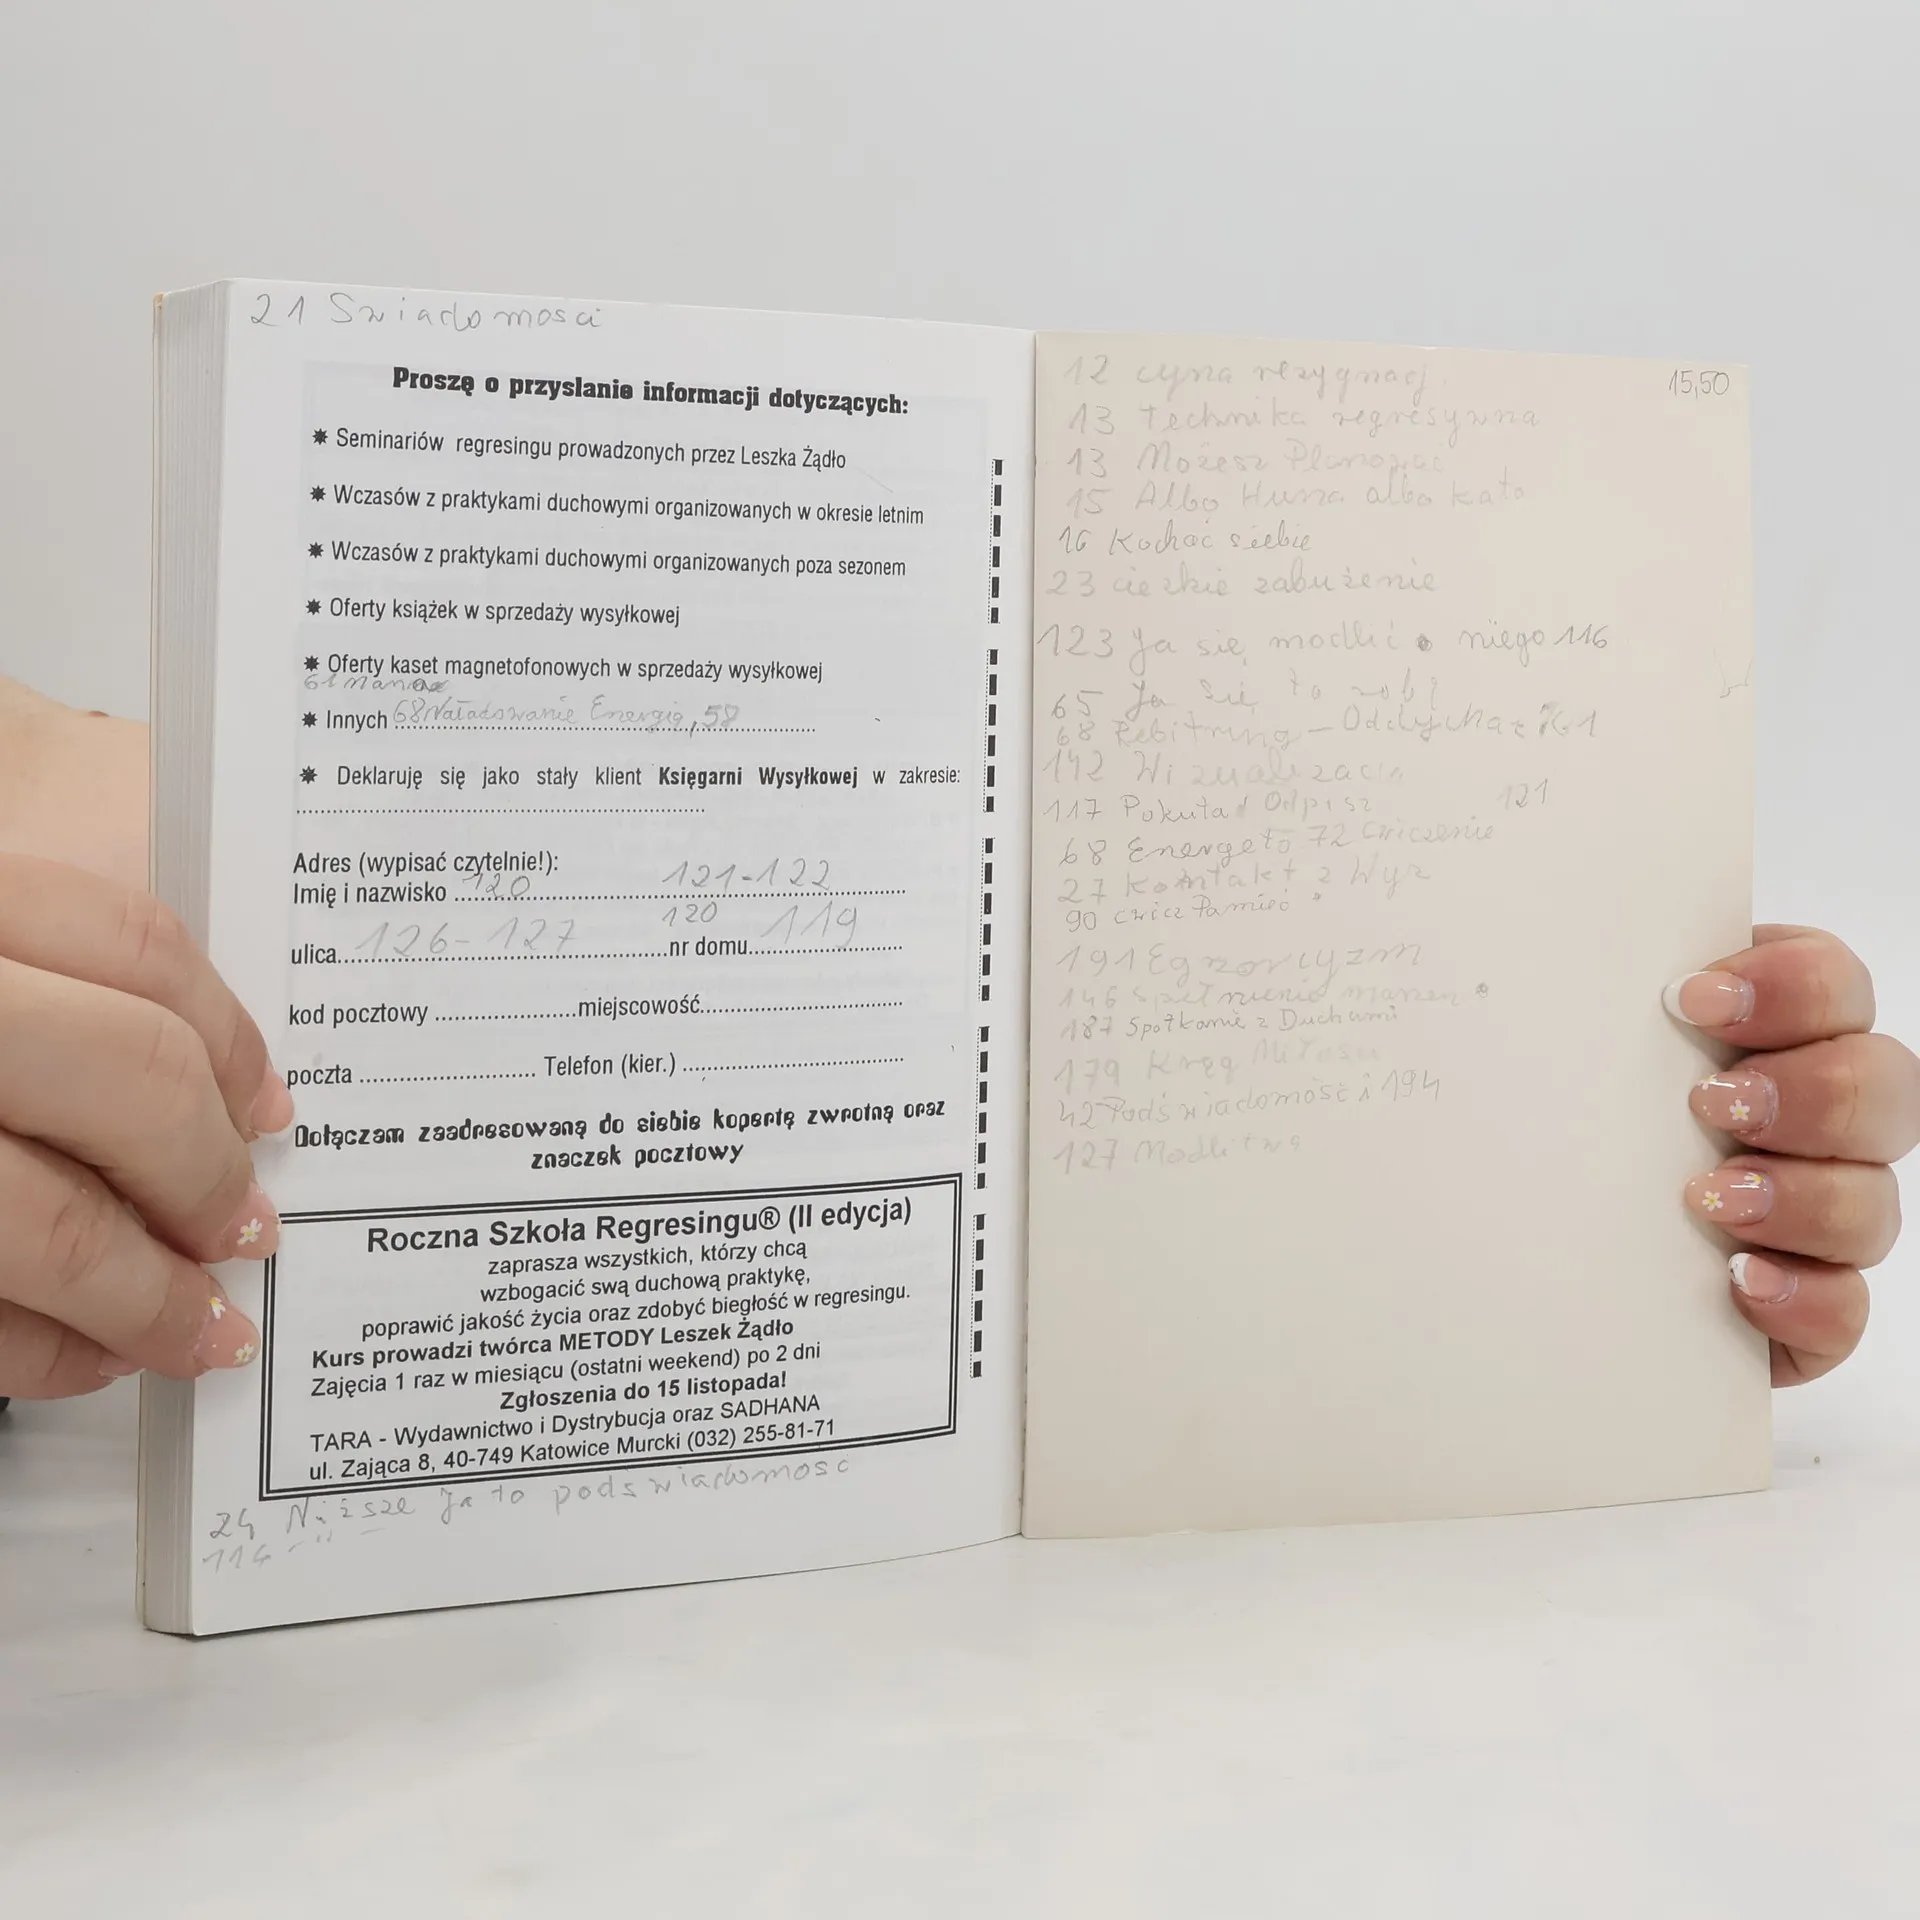 21 Swiadomosci
Proszę o przysłanie informacji dotyczących:
✷ Seminariów regresingu prowadzonych przez Leszka Żądło
✷ Wczasów z praktykami duchowymi organizowanych w okresie letnim
✷ Wczasów z praktykami duchowymi organizowanych poza sezonem
✷ Oferty książek w sprzedaży wysyłkowej
✷ Oferty kaset magnetofonowych w sprzedaży wysyłkowej
61
✷ Innych 68 Naładowanie Energią, 58
✷ Deklaruję się jako stały klient Księgarni Wysyłkowej w zakresie:
Adres (wypisać czytelnie!):
Imię i nazwisko 120 121-122
120
ulica 126-127 nr domu 119
kod pocztowy miejscowość
poczta Telefon (kier.)
Dołączam zaadresowaną do siebie kopertę zwrotną oraz
znaczek pocztowy
Roczna Szkoła Regresingu® (II edycja)
zaprasza wszystkich, którzy chcą
wzbogacić swą duchową praktykę,
poprawić jakość życia oraz zdobyć biegłość w regresingu.
Kurs prowadzi twórca METODY Leszek Żądło
Zajęcia 1 raz w miesiącu (ostatni weekend) po 2 dni
Zgłoszenia do 15 listopada!
TARA - Wydawnictwo i Dystrybucja oraz SADHANA
ul. Zająca 8, 40-749 Katowice Murcki (032) 255-81-71
24 Niższe Ja to podświadomość
114 - " -
15,50
12 rezygnacj
13 technika regresywna
13 Możesz Planować
15 Albo Huna albo
16 Kochać siebie
23 cieżkie zabużenie
123 Ja się modlić niego 116
65 Ja się to
68 Rebitring - Oddycha
142 Wizualizacja
117 Pokuta Odpisz 121
68 72 Cwiczenie
27 Kontakt z Wyż
90 cwicz Pamięć
191 Egzorcyzm
146 Spełnienie marzeń
187 Spotkanie z Duchami
179 Krąg Miłości
42 Podświadomość i 194
127 Modlitwa